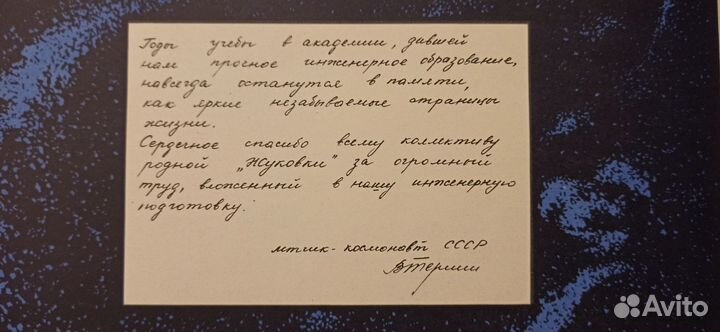 Годы учебы в академии, давшей
нам прочное инженерное образование,
навсегда останутся в памяти,
как яркие незабываемые страницы
жизни.
Сердечное спасибо всему коллективу
родной „Жуковки" за огромный
труд, вложенный в нашу инженерную
подготовку.
космонавт СССР
Avito